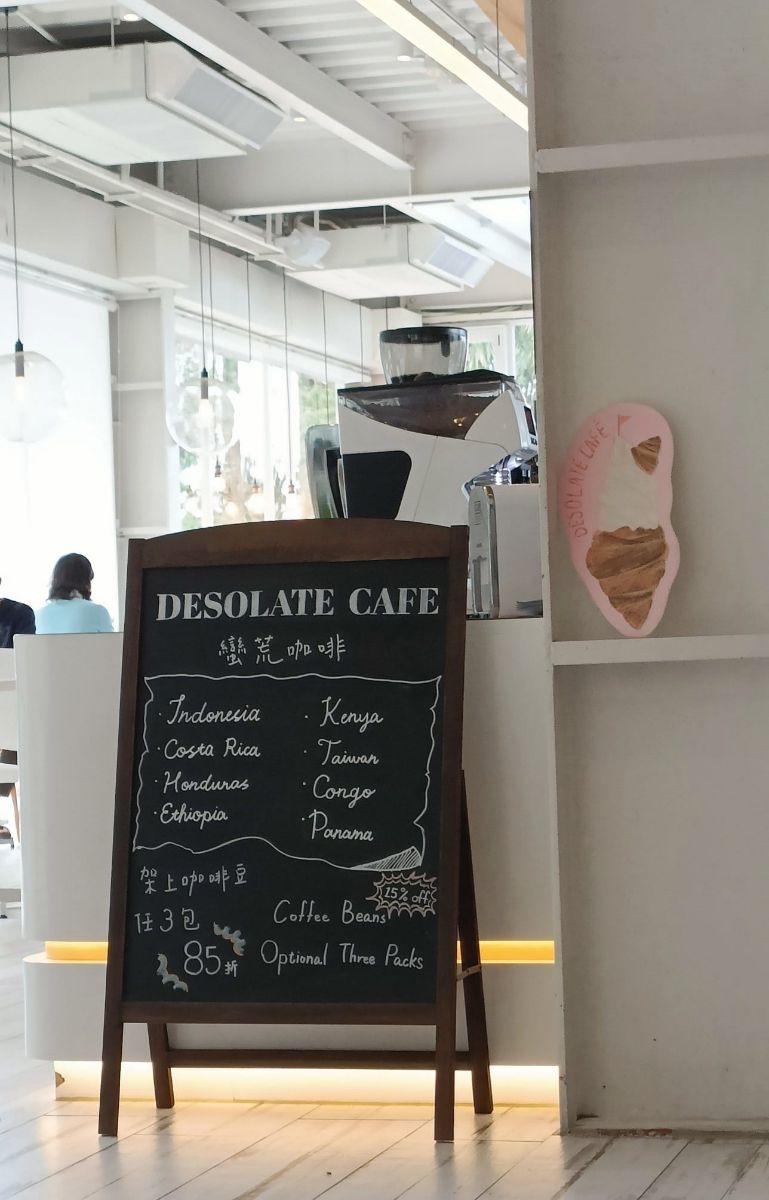 DESOLATE CAFE
蠻荒咖啡
· Indonesia
· Costa Rica
· Honduras
· Ethiopia
· Kenya
· Taiwan
· Congo
· Panama
架上咖啡豆
任3包
85折
15% off
Coffee Beans
Optional Three Packs
DESOLATE CAFÉ